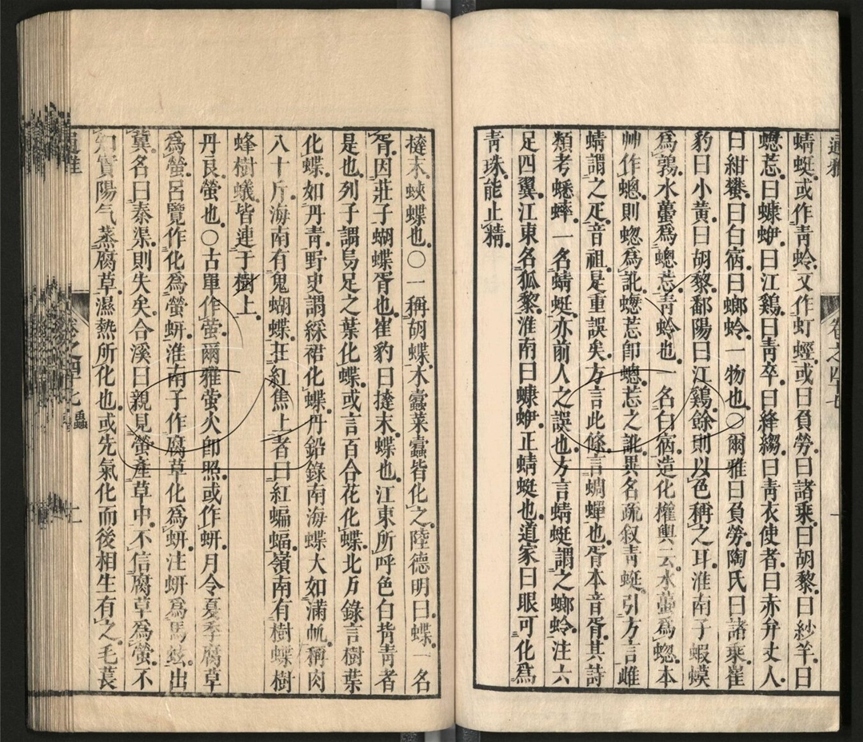 蜻蜓或作青蛉又作虰蛵或曰負勞曰諸乘曰胡黎曰紗羊曰
蟌䓤曰蠊蛜曰江鷄曰青卒曰絳縐曰青衣使者曰赤弁丈人
曰紺蠜曰白宿曰螂蛉一物也〇爾雅曰負勞陶氏曰諸乘崔
豹曰小黃曰胡黎鄱陽曰江鷄餘則以色稱之耳淮南子蝦蟆
爲鶉水蠆爲蟌䓤青蛉也一名白宿造化權輿云水蠆爲蟌本
艸作蟌則蟌爲訛蟌䓤卽蟌䓤之訛異名疏叙青蜓引方言雌
蜻謂之疋音祖是重誤矣方言此條言蜩蟬也胥本音胥其詩
類考蟋蟀一名蜻蜓亦前人之誤也方言蜻蜓謂之螂蛉注六
足四翼江東名狐黎淮南曰蠊蛜正蜻蜓也道家曰眼可化爲
青珠能止精
㨖末蛺蝶也〇一稱胡蝶木蠹菜蠹皆化之陸德明曰蝶一名
胥因莊子蝴蝶胥也崔豹曰㨖末蝶也江東所呼色白背青者
是也列子謂烏足之葉化蝶或言百合花化蝶北戶錄言樹葉
化蝶如丹青野史謂綵裙化蝶丹鉛錄南海蝶大如滿帆稱肉
八十斤海南有鬼蝴蝶在紅焦上者曰紅蝙蝠嶺南有樹蝶樹
蜂樹蟻皆連于樹上
丹良螢也〇古單作熒爾雅熒火卽照或作蚈月令夏季腐草
爲螢呂覽作化爲螢蚈淮南子作腐草化爲蚈注蚈爲馬蚿出
冀名曰秦渠則失矣合溪曰親見螢產草中不信腐草爲螢不
知實陽气蒸腐草濕熱所化也或先氣化而後相生有之毛萇
通雅
卷之四十七
蟲
十一